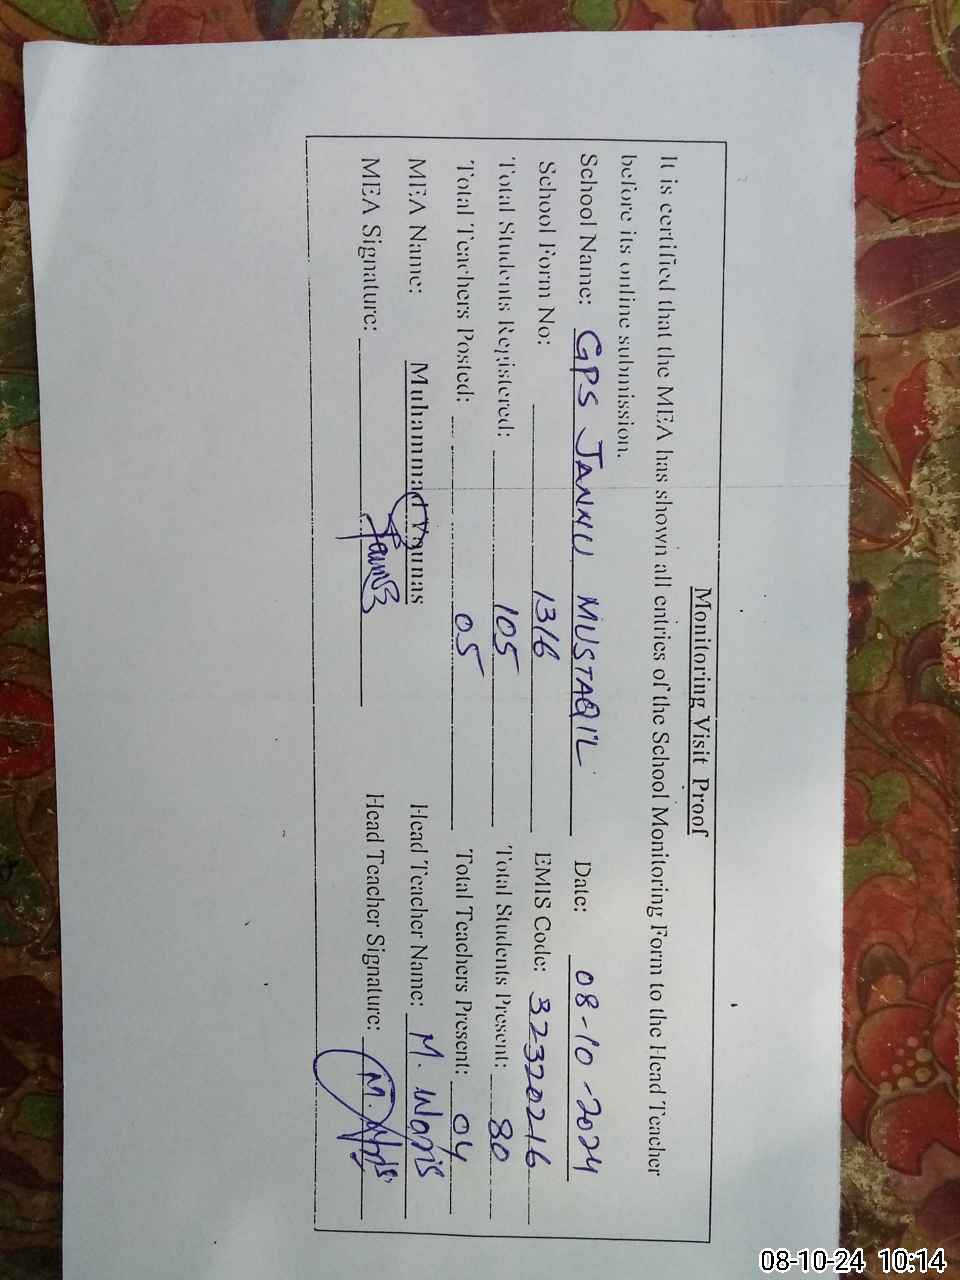 Monitoring Visit Proof
It is certified that the MEA has shown all entries of the School Monitoring Form to the Head Teacher
before its online submission.
School Name: GPS JANNU MUSTAQIL Date: 08-10-2024
School Form No: 1316 EMIS Code: 32320216
Total Students Registered: 105 Total Students Present: 80
Total Teachers Posted: 05 Total Teachers Present: 04
MEA Name: Muhammad Younas Head Teacher Name: M. Waris
MEA Signature: Head Teacher Signature: M.
08-10-24 10:14